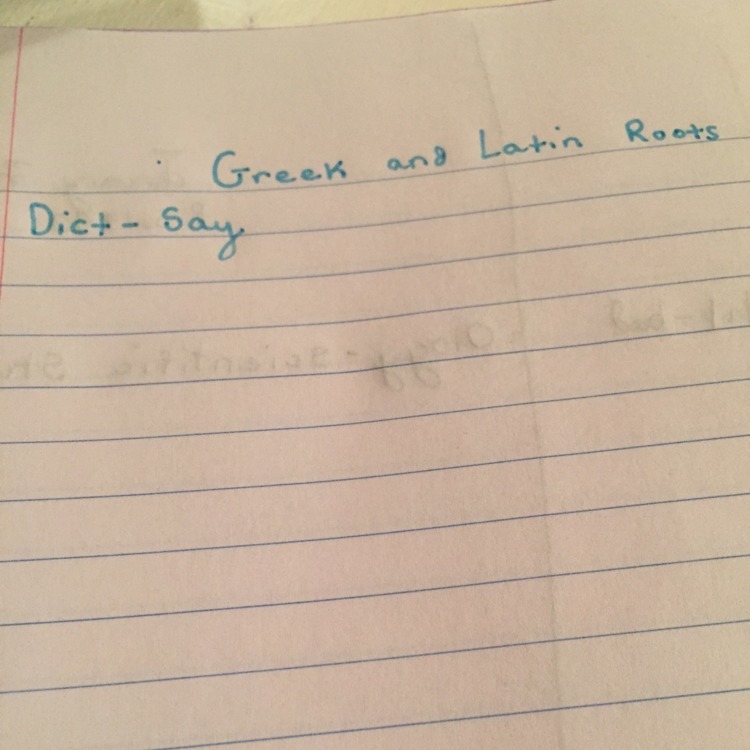 Greek and Latin Roots
Dict - Say